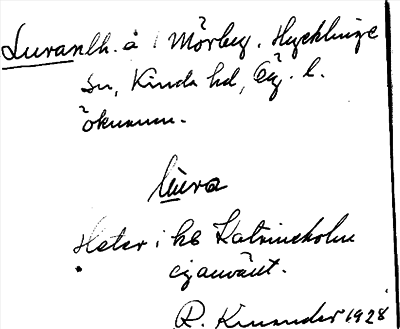 Luran lh. å Mörby. Hycklinge
sn, Kinda hd, Ög. l.
öknamn.
lùra
Heter i kb Katrineholm
ej använt.
R. Kinander 1928